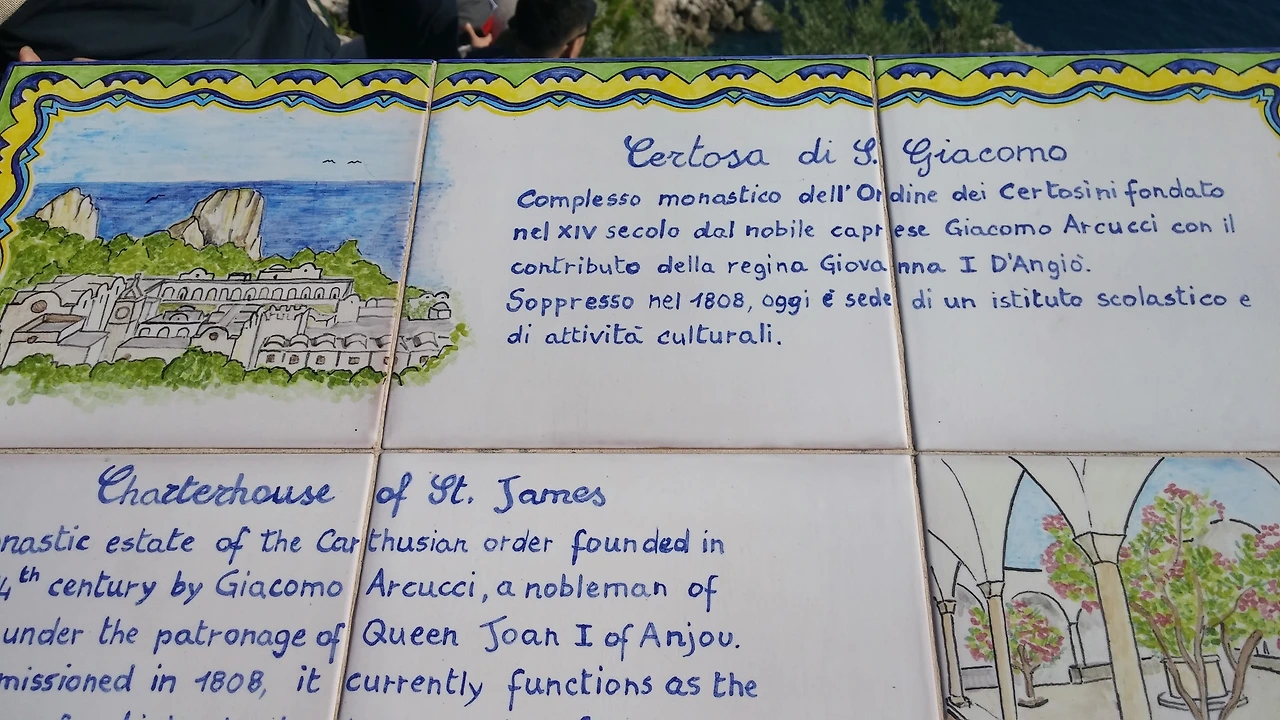 Certosa di S. Giacomo
Complesso monastico dell'Ordine dei Certosini fondato
nel XIV secolo dal nobile caprese Giacomo Arcucci con il
contributo della regina Giovanna I D'Angiò.
Soppresso nel 1808, oggi è sede di un istituto scolastico e
di attività culturali.
Charterhouse of St. James
nastic estate of the Carthusian order founded in
4th century by Giacomo Arcucci, a nobleman of
under the patronage of Queen Joan I of Anjou.
missioned in 1808, it currently functions as the